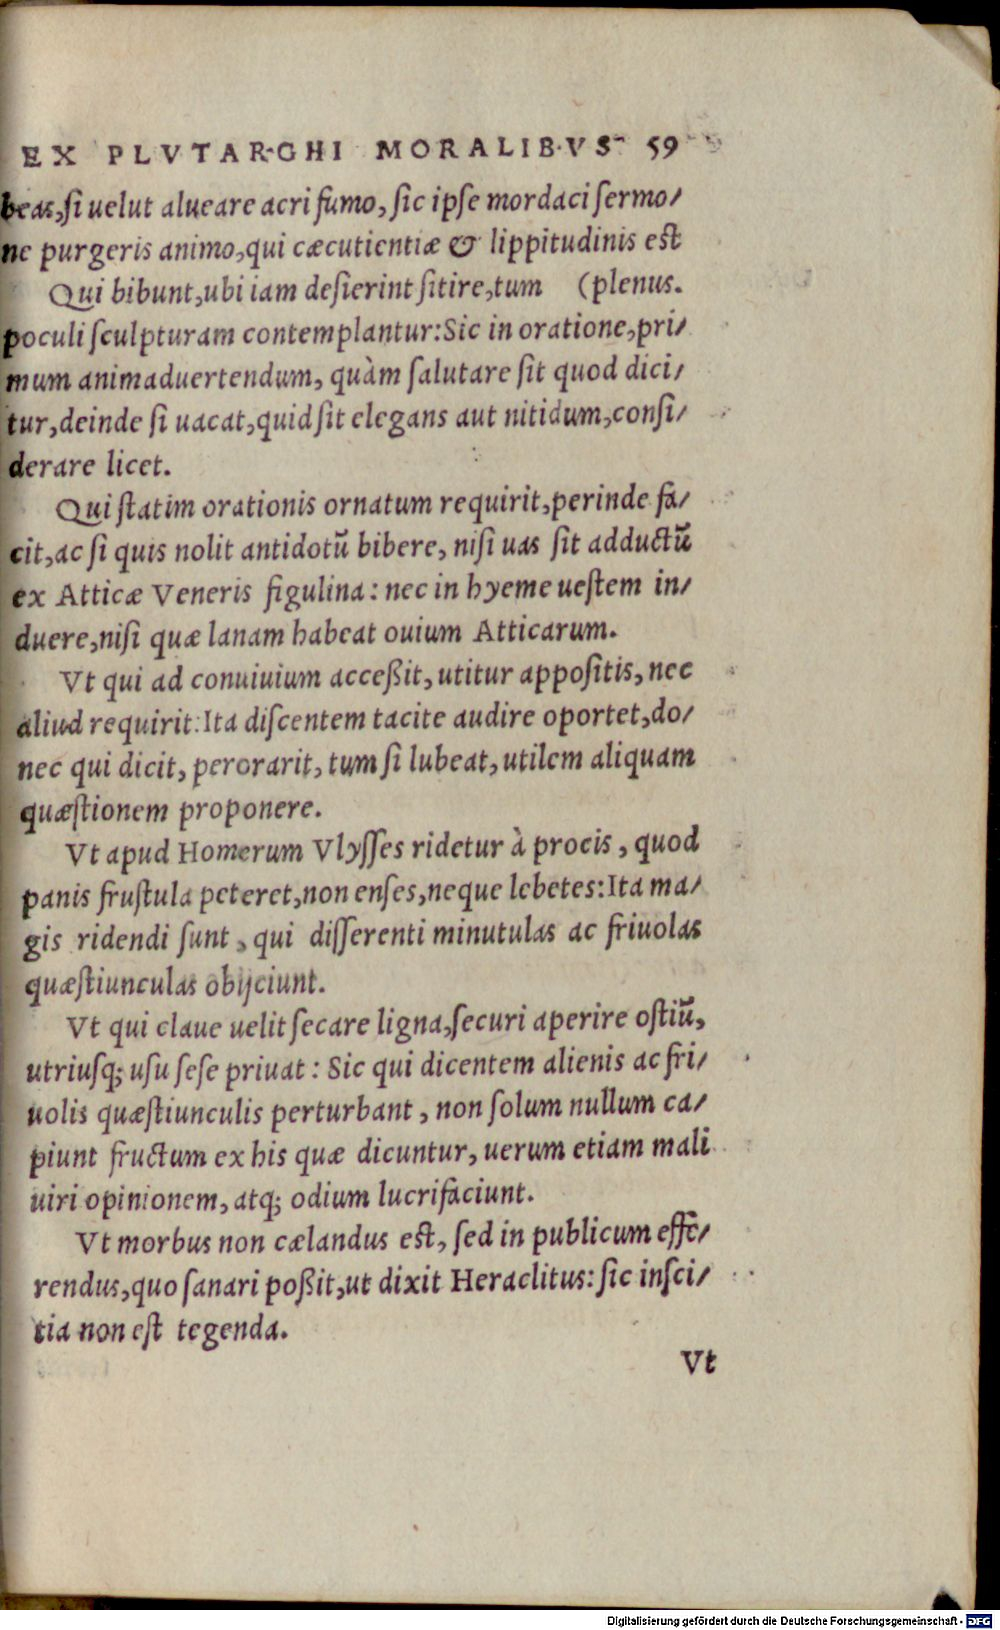 EX PLVTARCHI MORALIBVS 59
beas, si uelut alueare acri fumo, sic ipse mordaci sermo/
ne purgeris animo, qui cæcutientiæ & lippitudinis est
Qui bibunt, ubi iam desierint sitire, tum (plenus.
poculi sculpturam contemplantur: Sic in oratione, pri/
mum animaduertendum, quàm salutare sit quod dici/
tur, deinde si uacat, quid sit elegans aut nitidum, consi/
derare licet.
Qui statim orationis ornatum requirit, perinde fa/
cit, ac si quis nolit antidotũ bibere, nisi uas sit adductũ
ex Atticæ Veneris figulina: nec in hyeme uestem in/
duere, nisi quæ lanam habeat ouium Atticarum.
Vt qui ad conuiuium acceßit, utitur appositis, nec
aliud requirit: Ita discentem tacite audire oportet, do/
nec qui dicit, perorarit, tum si lubeat, utilem aliquam
quæstionem proponere.
Vt apud Homerum Vlysses ridetur à procis, quod
panis frustula peteret, non enses, neque lebetes: Ita ma/
gis ridendi sunt, qui disserenti minutulas ac friuolas
quæstiunculas obijciunt.
Vt qui claue uelit secare ligna, securi aperire ostiũ,
utriusq; usu sese priuat: Sic qui dicentem alienis ac fri/
uolis quæstiunculis perturbant, non solum nullum ca/
piunt fructum ex his quæ dicuntur, uerum etiam mali
uiri opinionem, atq; odium lucrifaciunt.
Vt morbus non cælandus est, sed in publicum effe/
rendus, quo sanari poßit, ut dixit Heraclitus: sic insci/
tia non est tegenda.
Vt
Digitalisierung gefördert durch die Deutsche Forschungsgemeinschaft - DFG